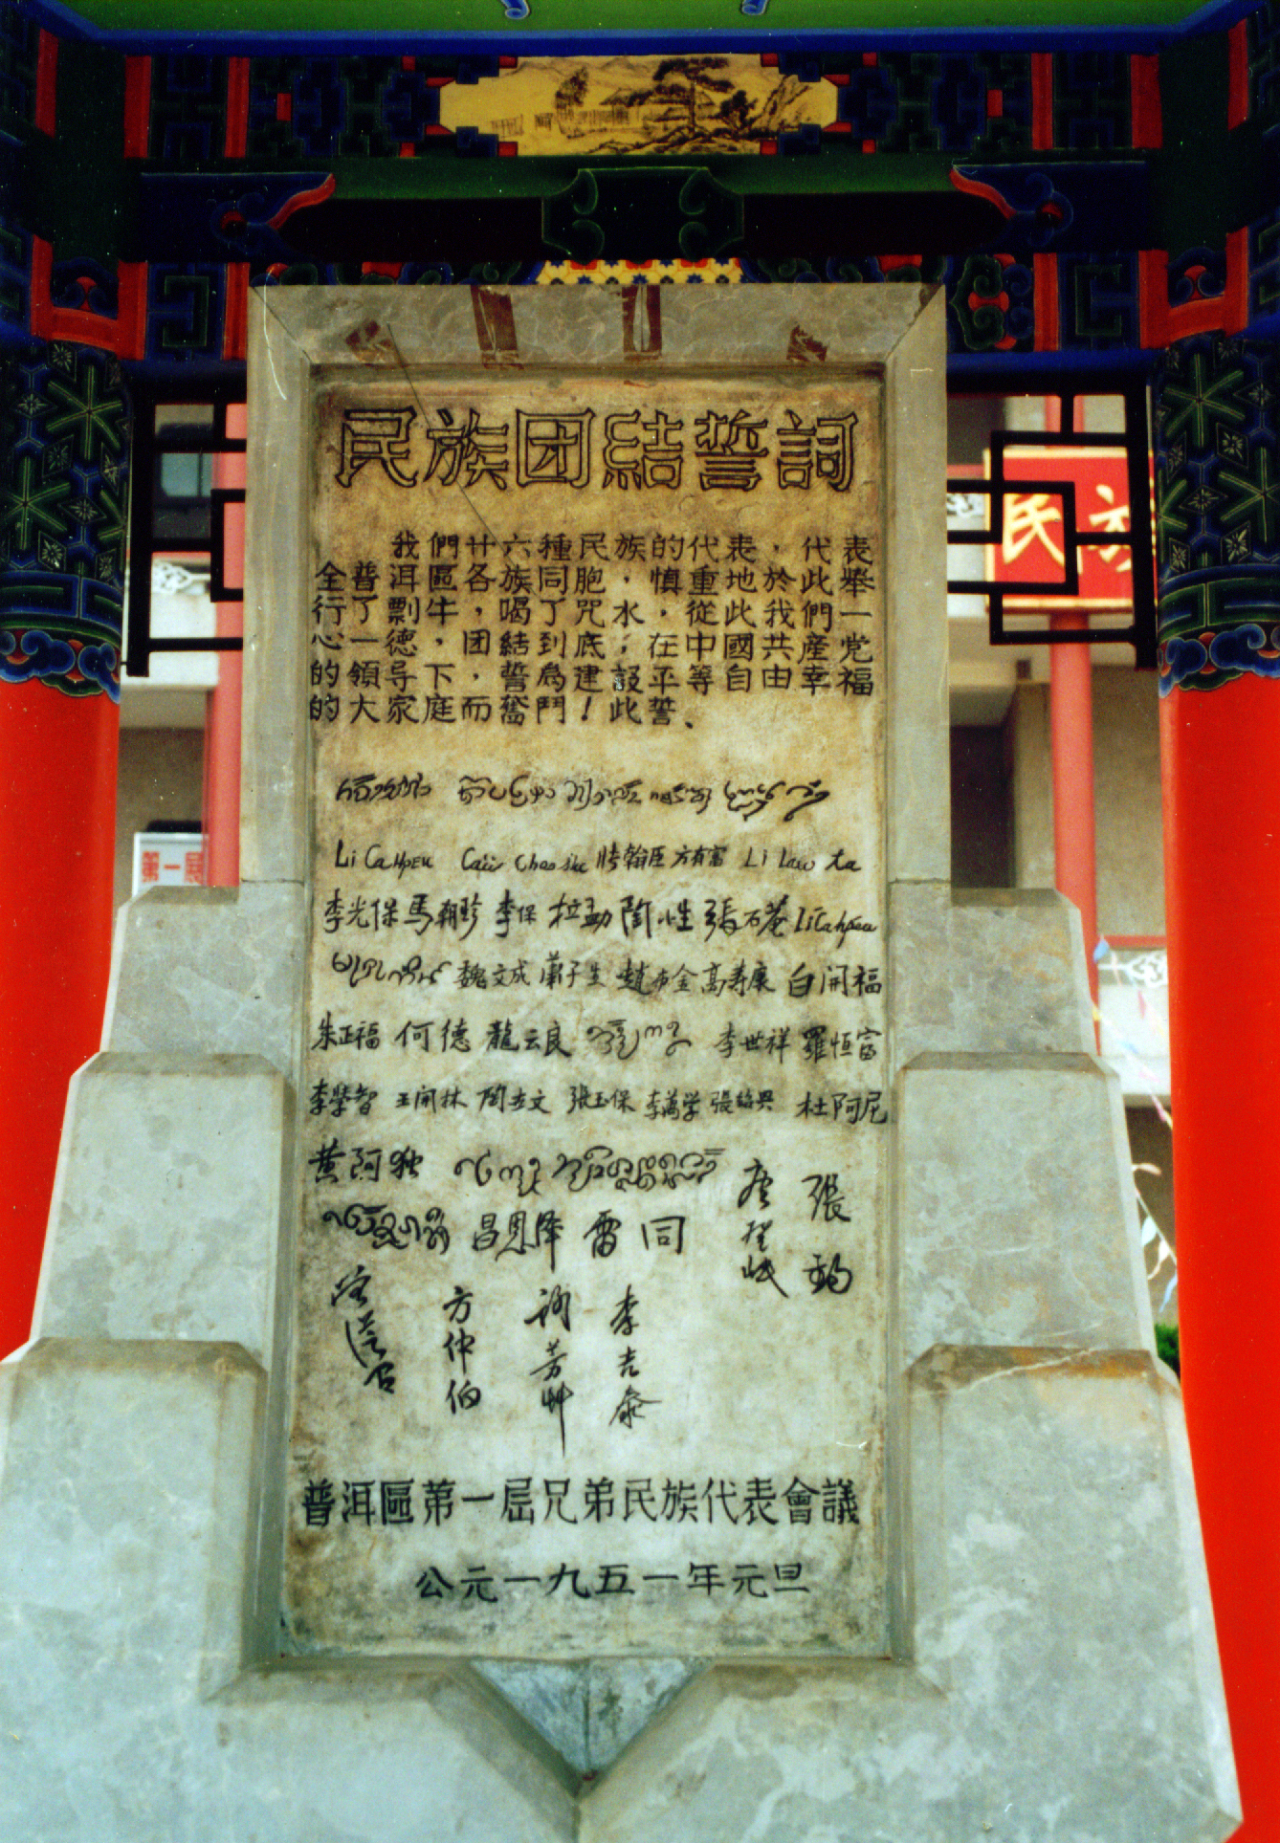 民族团結誓詞
我們廿六種民族的代表，代表
全普洱區各族同胞，慎重地於此舉
行了剽牛，喝了咒水，從此我們一
心一德，团結到底，在中國共産党
的領导下，誓爲建設平等自由幸福
的大家庭而奮鬥！此誓、
Li Cahpeu 方有富 Li Law ta
李光保 馬朝珍 李保 拉勐 陶小生 張石菴 Li Cahpeu
魏文成 蕭子生 趙布金 高寿康 白開福
朱正福 何德 龍云良 李世祥 羅恒富
李學智 王开林 陶世文 張玉保 李萬学 張紹兴 杜阿尼
黄阿独 唐登岷 張鈞
昌恩泽 雷同
方仲伯 李吉泰
普洱區第一屆兄弟民族代表會議
公元一九五一年元旦
民族
第一屆